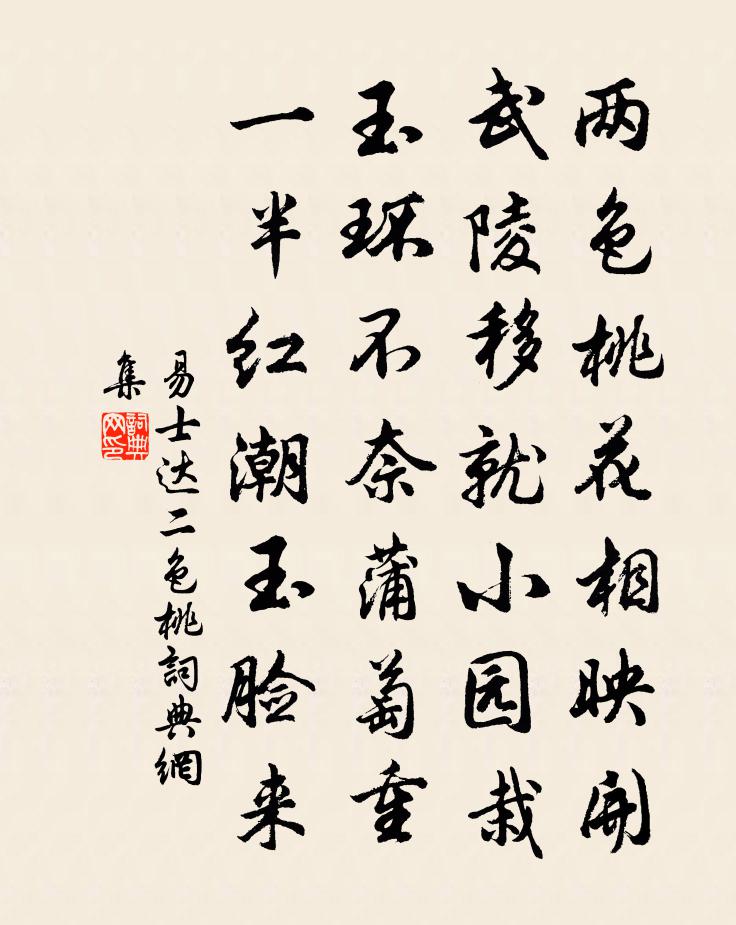 两色桃花相映開
武陵移就小园栽
玉环不奈蒲萄重
一半红潮玉脸来
易士达二色桃詞典網
集
詞典
网印